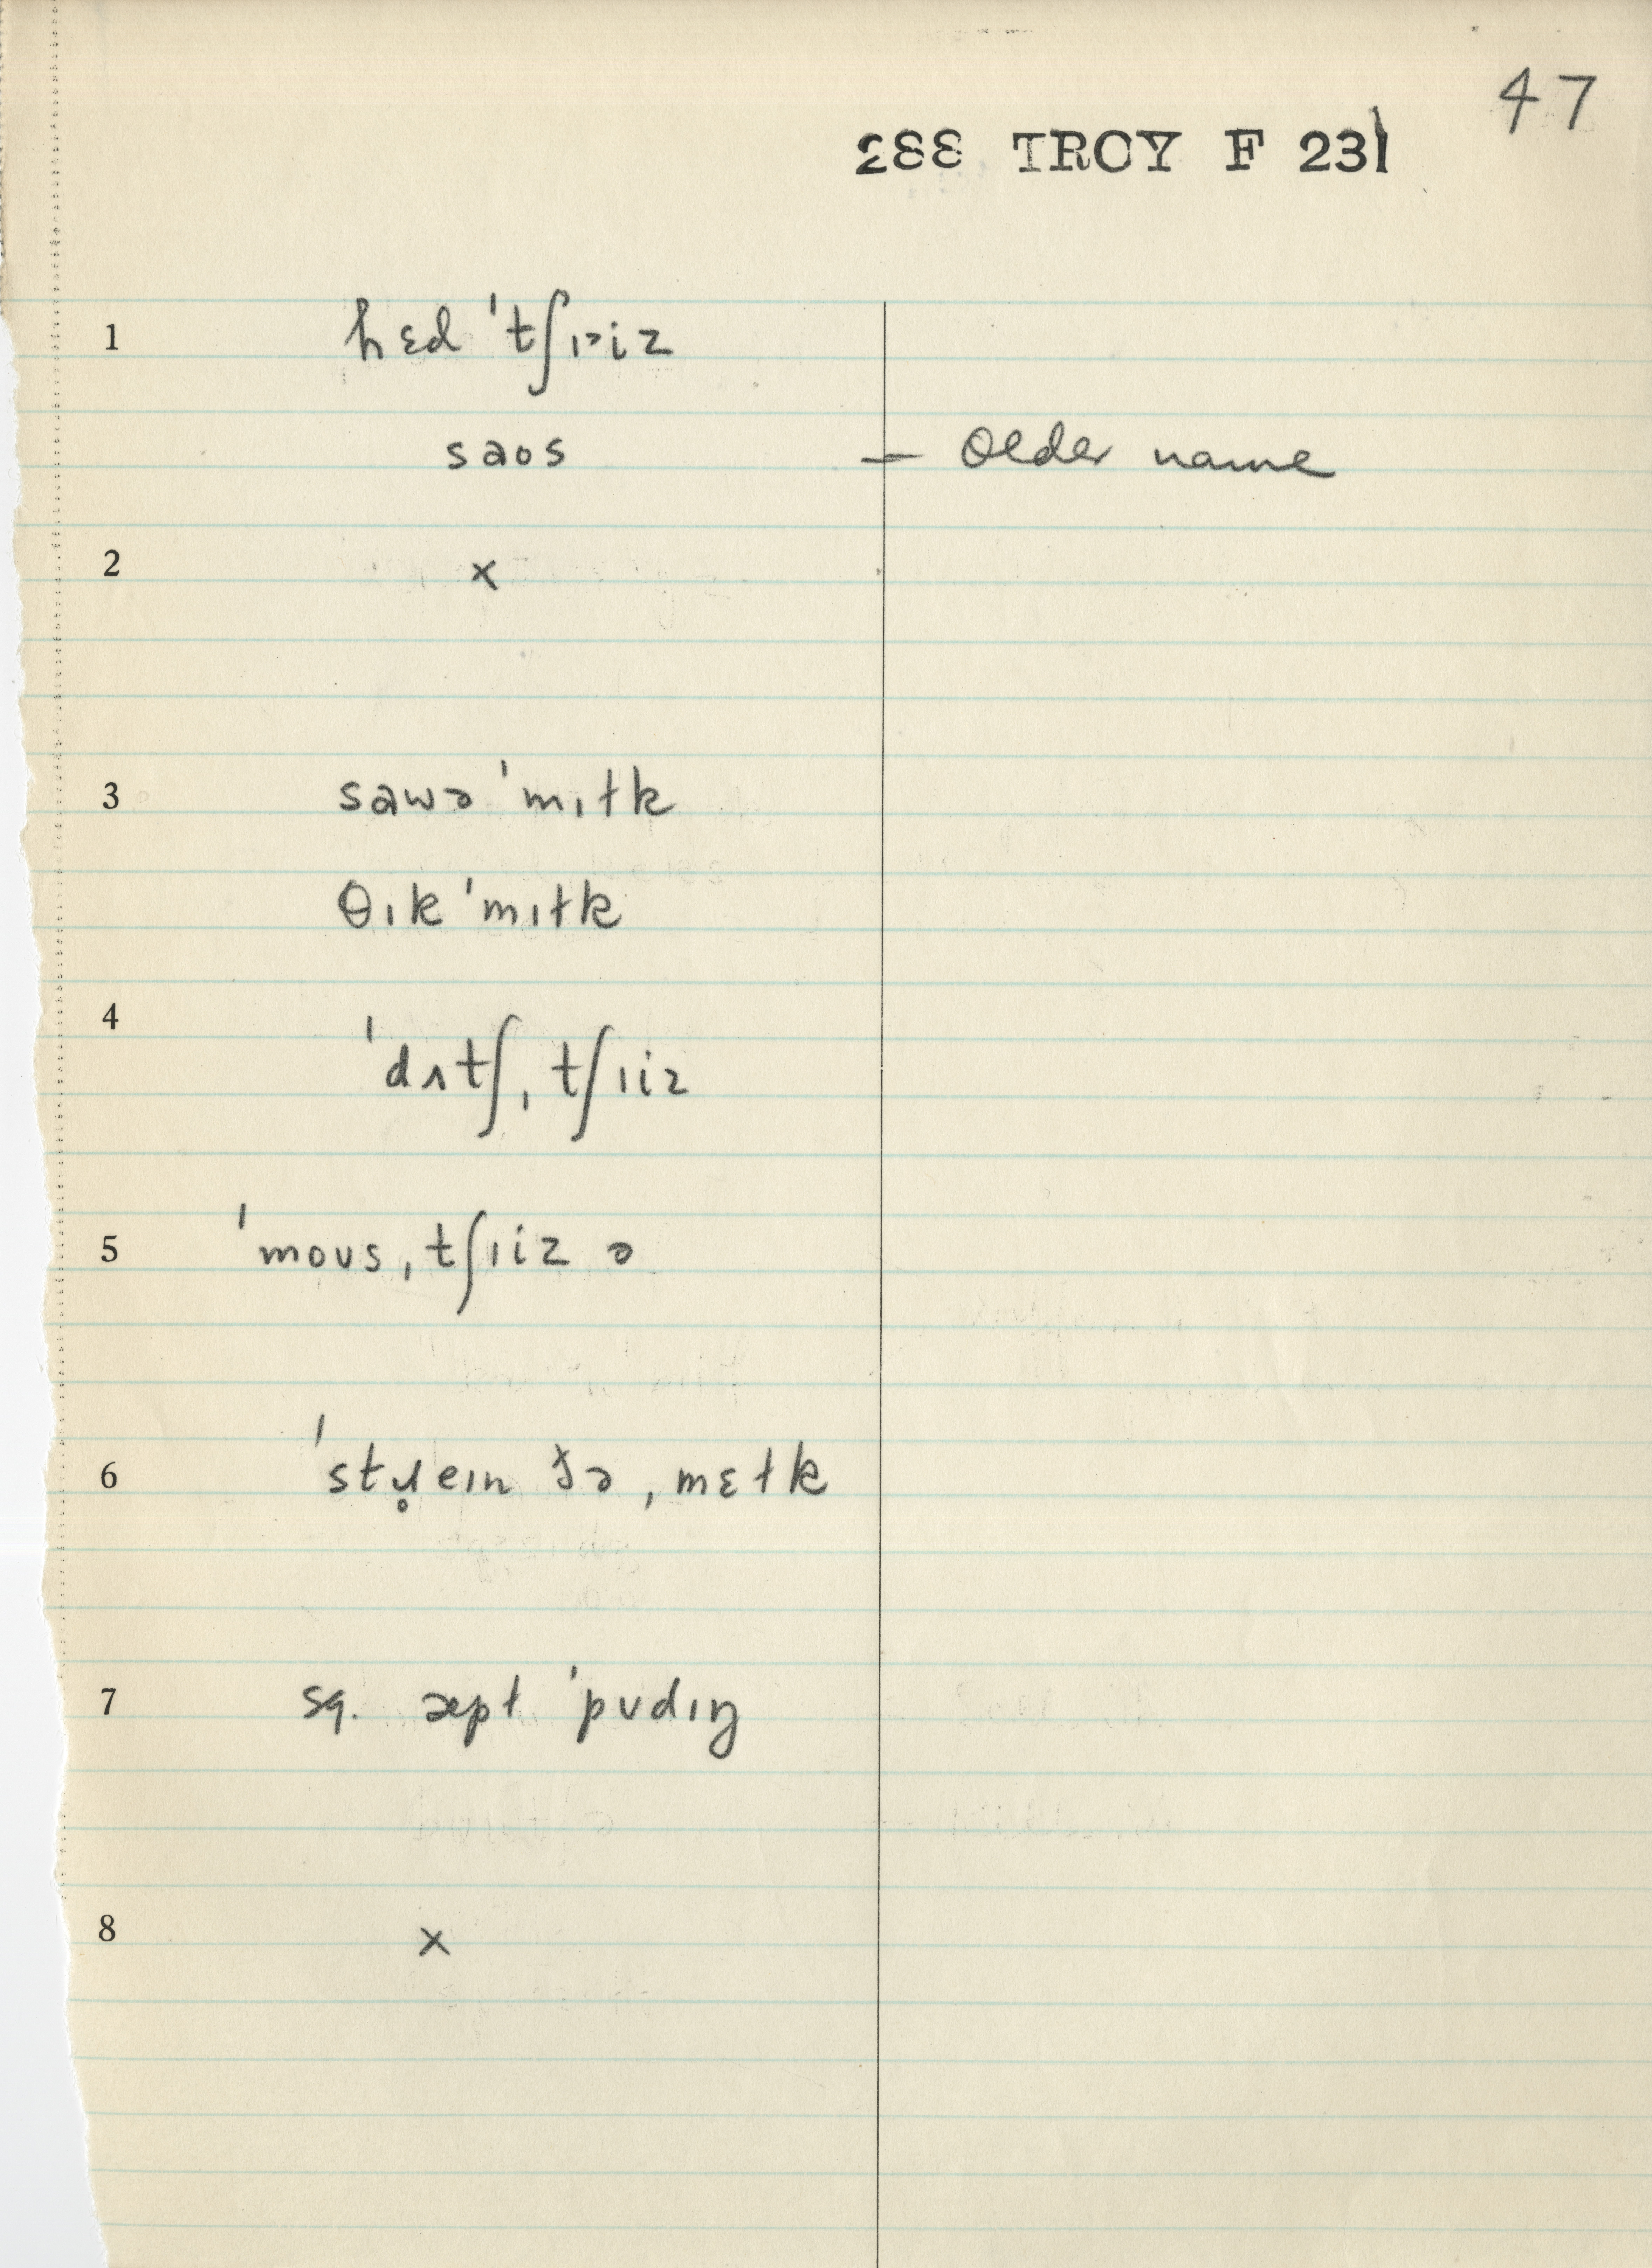 47
288 TROY F 231
1 hɛd ˈtʃɪ˃iz
saos — Older name
2 x
3 sawə ˈmɪɫk
θɪk ˈmɪɫk
4 ˈdʌtʃˌtʃɪiz
5 ˈmoʊsˌtʃɪiz ə
6 ˈstɹ̥eɪn ðə ˌmɛɫk
7 sq. æpɫ ˈpʊdɪŋ
8 x